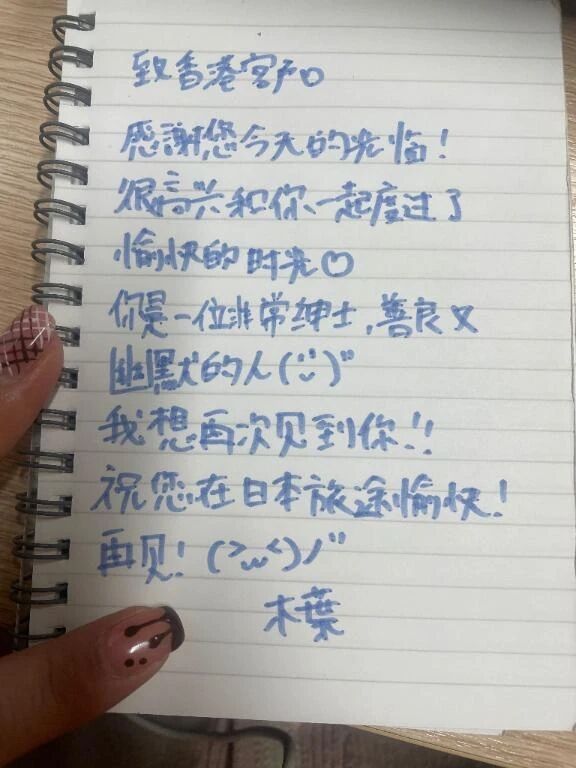 致香港客户♡
感謝您今天的光临！
很高兴和你一起度过了
愉快的时光♡
你是一位非常绅士，善良又
幽默的人(¨̮)"
我想再次见到你！！
祝您在日本旅途愉快！
再见！(>ω<)ノ"
木葉